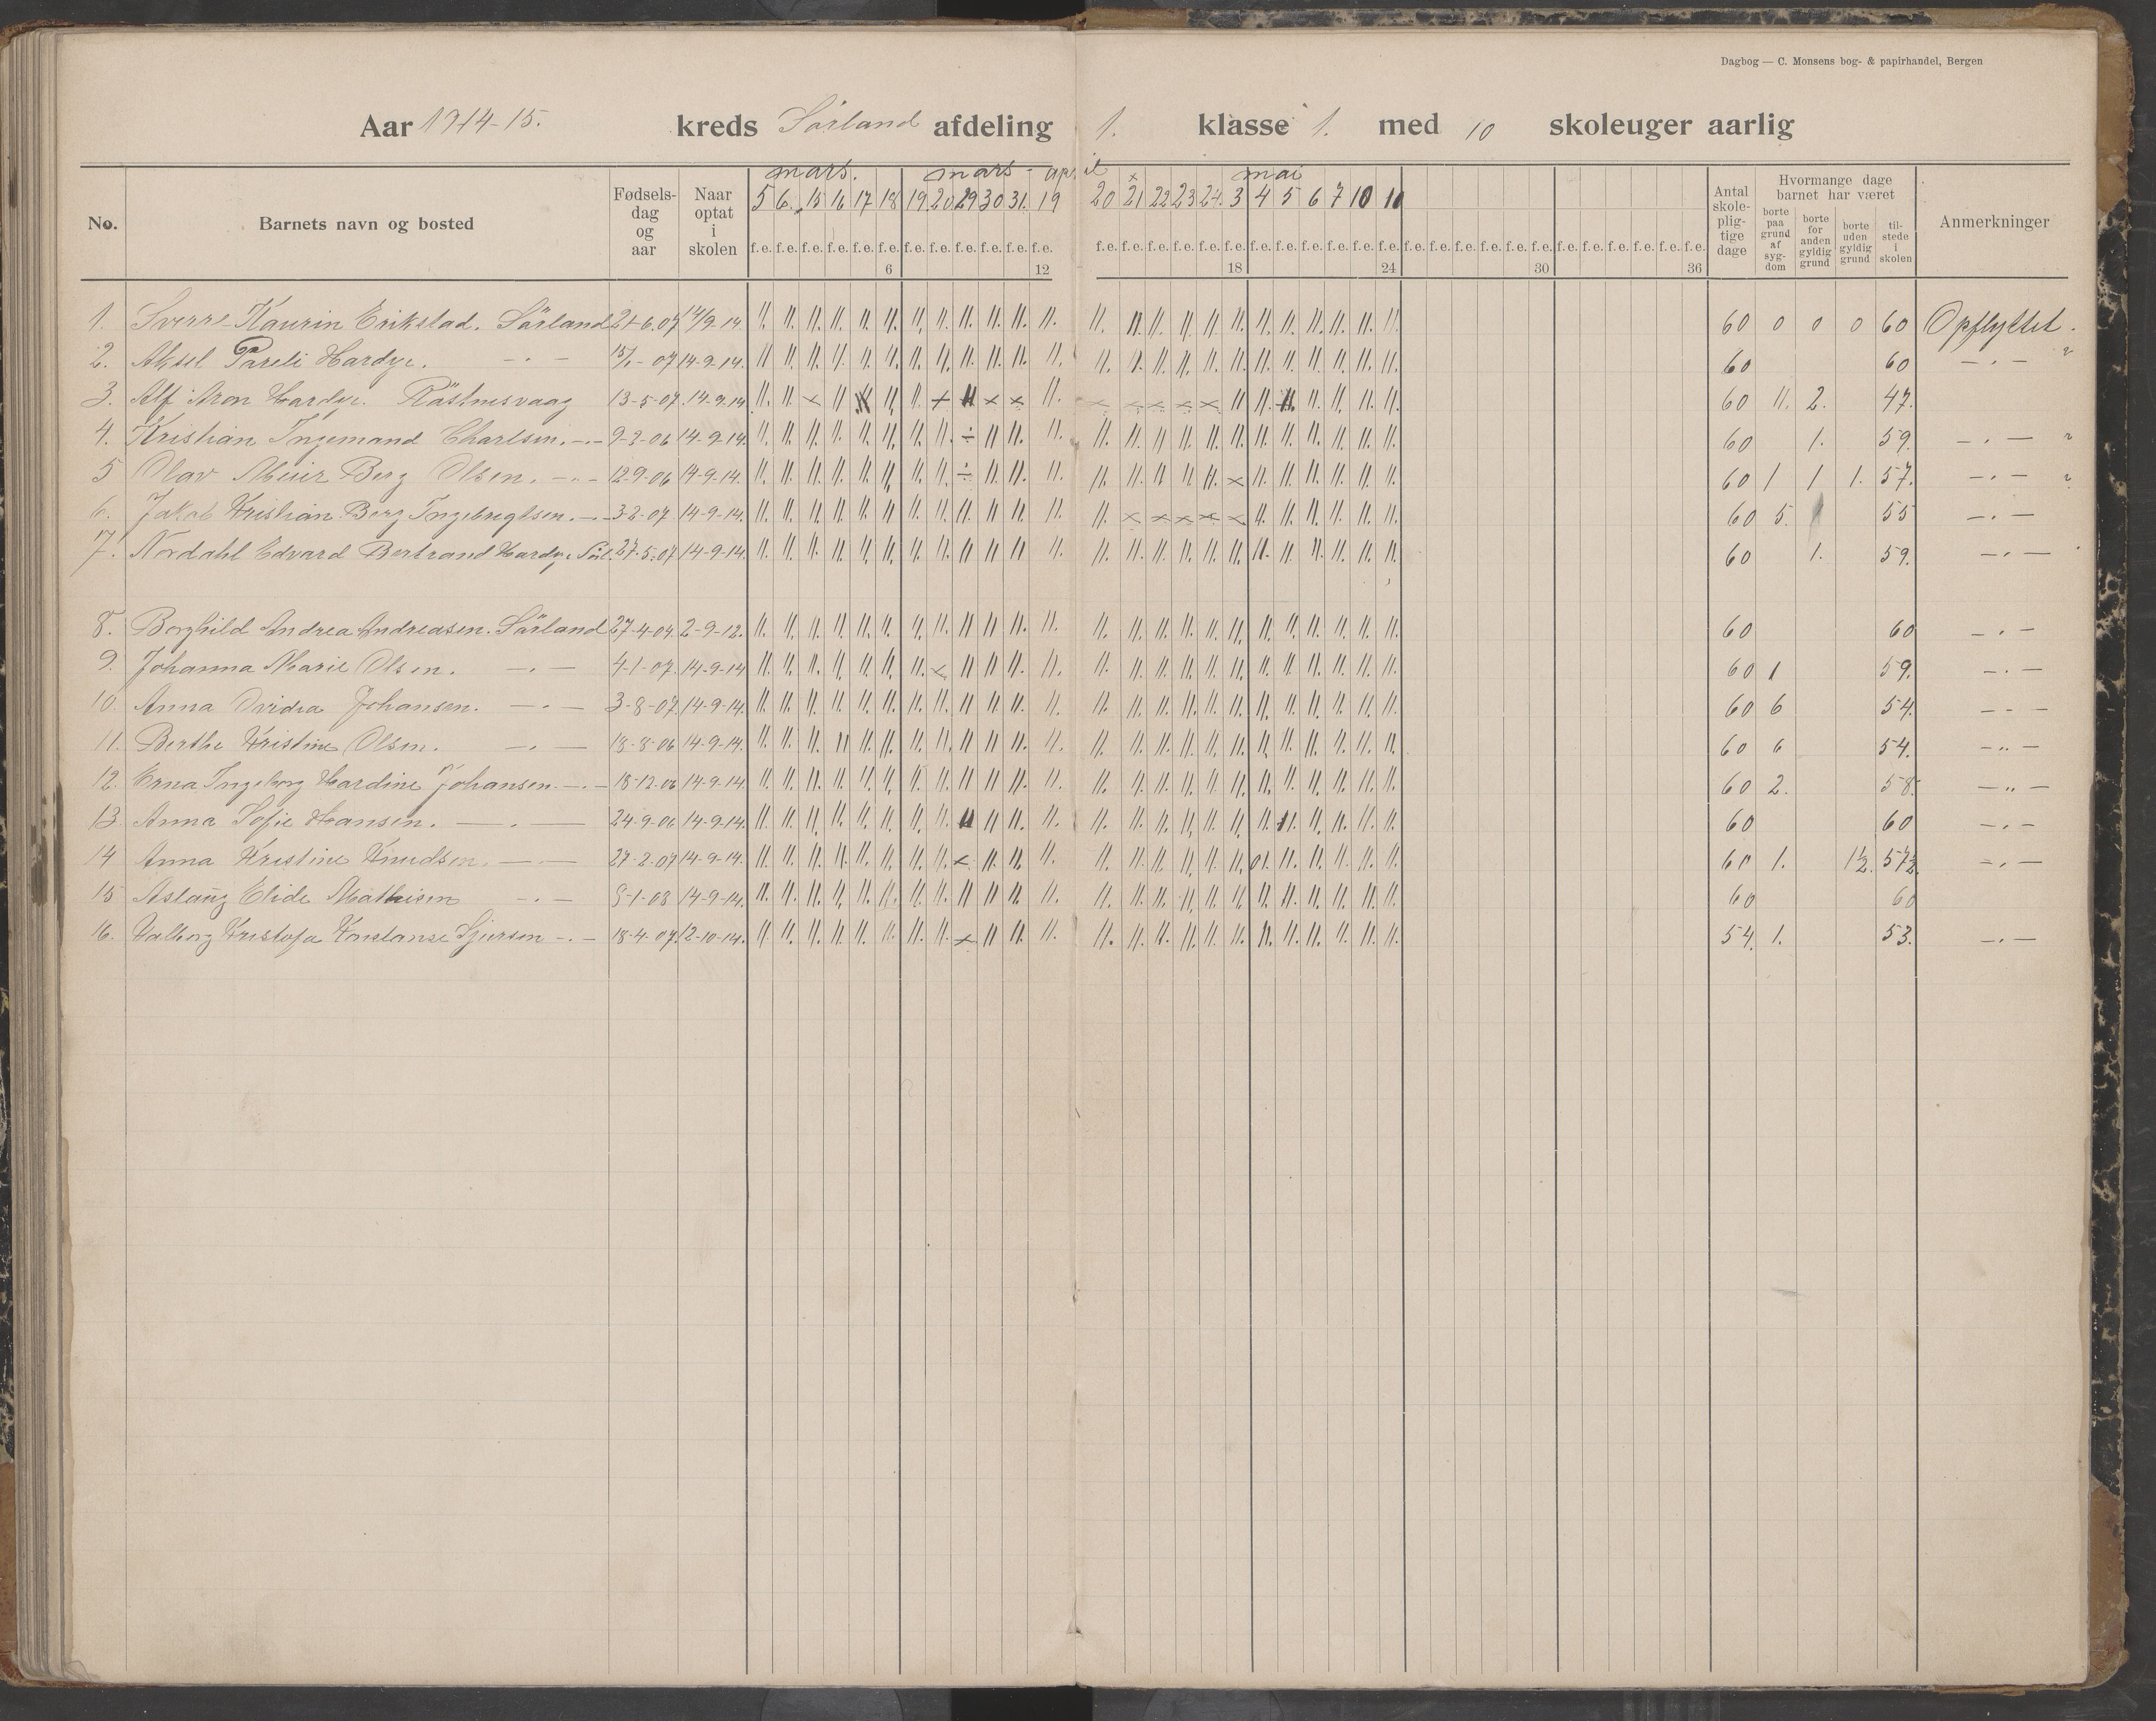 Dagbog — C. Monsens bog- & papirhandel, Bergen
Aar 1914-15. kreds Sørland afdeling 1. klasse 1. med 10 skoleuger aarlig
mars. mars - april mai
No. Barnets navn og bosted Fødsels-dag og aar Naar optat i skolen 5 6. 15 16 17 18 19 20 29 30 31. 19 20 21 22 23 24. 3 4 5 6 7 10 10 Antal skole-plig-tige dage Hvormange dage barnet har været Anmerkninger
borte paa grund af syg-dom borte for anden gyldig grund borte uden gyldig grund til-stede i skolen
f.e. f.e. f.e. f.e. f.e. f.e. f.e. f.e. f.e. f.e. f.e. f.e. f.e. f.e. f.e. f.e. f.e. f.e. f.e. f.e. f.e. f.e. f.e. f.e. f.e. f.e. f.e. f.e. f.e. f.e. f.e. f.e. f.e. f.e. f.e. f.e.
6 12 18 24 30 36
1. Sverre Kaurin Erikstad. Sørland 21-6.07 14/9.14. 60 0 0 0 60 Opflyttet.
2. Aksel Pareli Hardyr. -.- 15/1-07 14-9-14. 60 60 -.-
3. Alf Aron Hardyr. Røstnesvaag 13-5-07. 14-9.14 60 11. 2. 47.
4. Kristian Ingemand Charlsen. -.- 9-2-06 14-9-14. 60 1. 59. -.-
5 Olav Meier Berg Olsen. -.- 12-9-06 14-9-14. 60 1 1 1. 57. -.-
6. Jakob Kristian Berg Ingebrigtsen. -.- 3-2-07. 14-9-14. 60 5. 55 -.-
7. Nordahl Edvard Bertrand Hardyr Sørl. 27-5-07 14-9-14. 60 1. 59. -.-
8. Borghild Andrea Andreasen. Sørland 27-4-04 2-9-12. 60 60 -.-
9. Johanna Marie Olsen. -.- 4-1-07. 14-9-14 60 1 59. -.-
10. Anna Ovidia Johansen. -.- 3-8-07. 14-9-14. 60 6 54. -.-
11. Berthe Kristine Olsen. -.- 18-8-06 14-9-14. 60 6 54. -"-
12. Erna Ingeborg Hardine Johansen. -.- 18-12-06 14-9-14. 60 2. 58. -"-
13. Anna Sofie Hansen. -.- 24-9-06 14-9-14. 60 60 -.-
14 Anna Kristine Knudsen. -.- 27-2-07 14-9-14. 60 1. 1½. 57½. -.-
15 Aslaug Elide Mathisen -.- 5-1-08 14-9-14. 60 60
16. Valborg Kristofa Konstanse Sjursen -.- 18-4-07. 12-10-14. 54. 1. 53. -.-